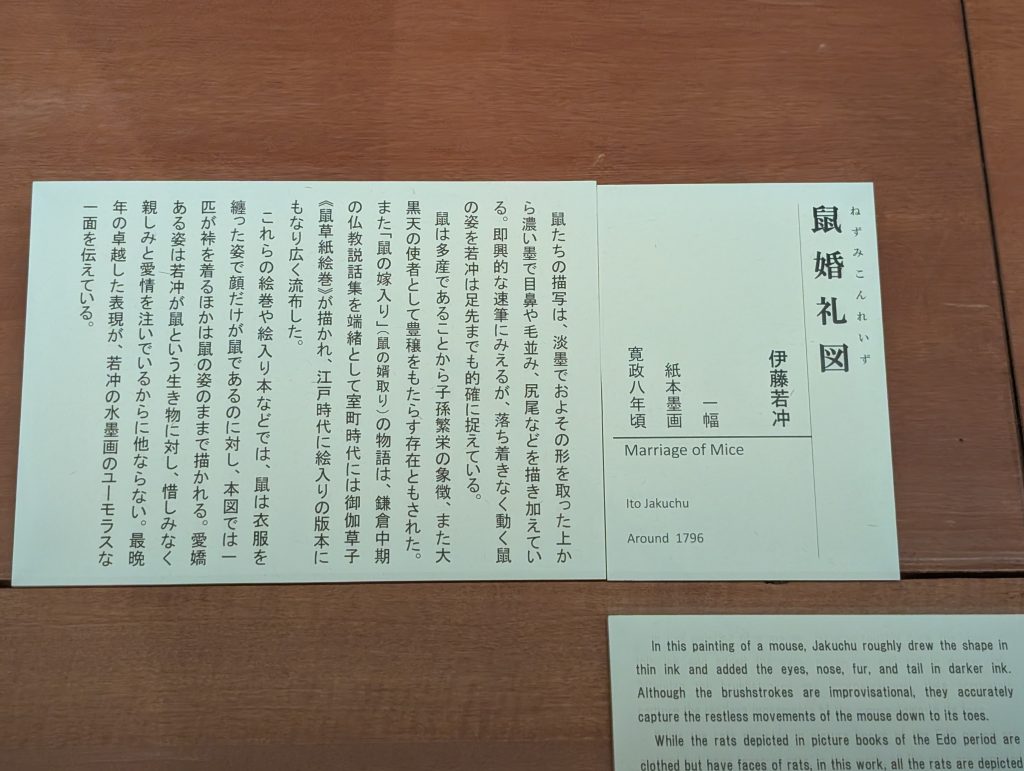 ねずみこんれいず
鼠婚礼図
伊藤若冲
一幅
紙本墨画
寛政八年頃
Marriage of Mice
Ito Jakuchu
Around 1796
鼠たちの描写は、淡墨でおよその形を取った上か
ら濃い墨で目鼻や毛並み、尻尾などを描き加えてい
る。即興的な速筆にみえるが、落ち着きなく動く鼠
の姿を若冲は足先までも的確に捉えている。
鼠は多産であることから子孫繁栄の象徴、また大
黒天の使者として豊穣をもたらす存在ともされた。
また「鼠の嫁入り」(鼠の婿取り)の物語は、鎌倉中期
の仏教説話集を端緒として室町時代には御伽草子
《鼠草紙絵巻》が描かれ、江戸時代に絵入りの版本に
もなり広く流布した。
これらの絵巻や絵入り本などでは、鼠は衣服を
纏った姿で顔だけが鼠であるのに対し、本図では一
匹が裃を着るほかは鼠の姿のままで描かれる。愛嬌
ある姿は若冲が鼠という生き物に対し、惜しみなく
親しみと愛情を注いでいるからに他ならない。最晩
年の卓越した表現が、若冲の水墨画のユーモラスな
一面を伝えている。
In this painting of a mouse, Jakuchu roughly drew the shape in
thin ink and added the eyes, nose, fur, and tail in darker ink.
Although the brushstrokes are improvisational, they accurately
capture the restless movements of the mouse down to its toes.
While the rats depicted in picture books of the Edo period are
clothed but have faces of rats, in this work, all the rats are depicted